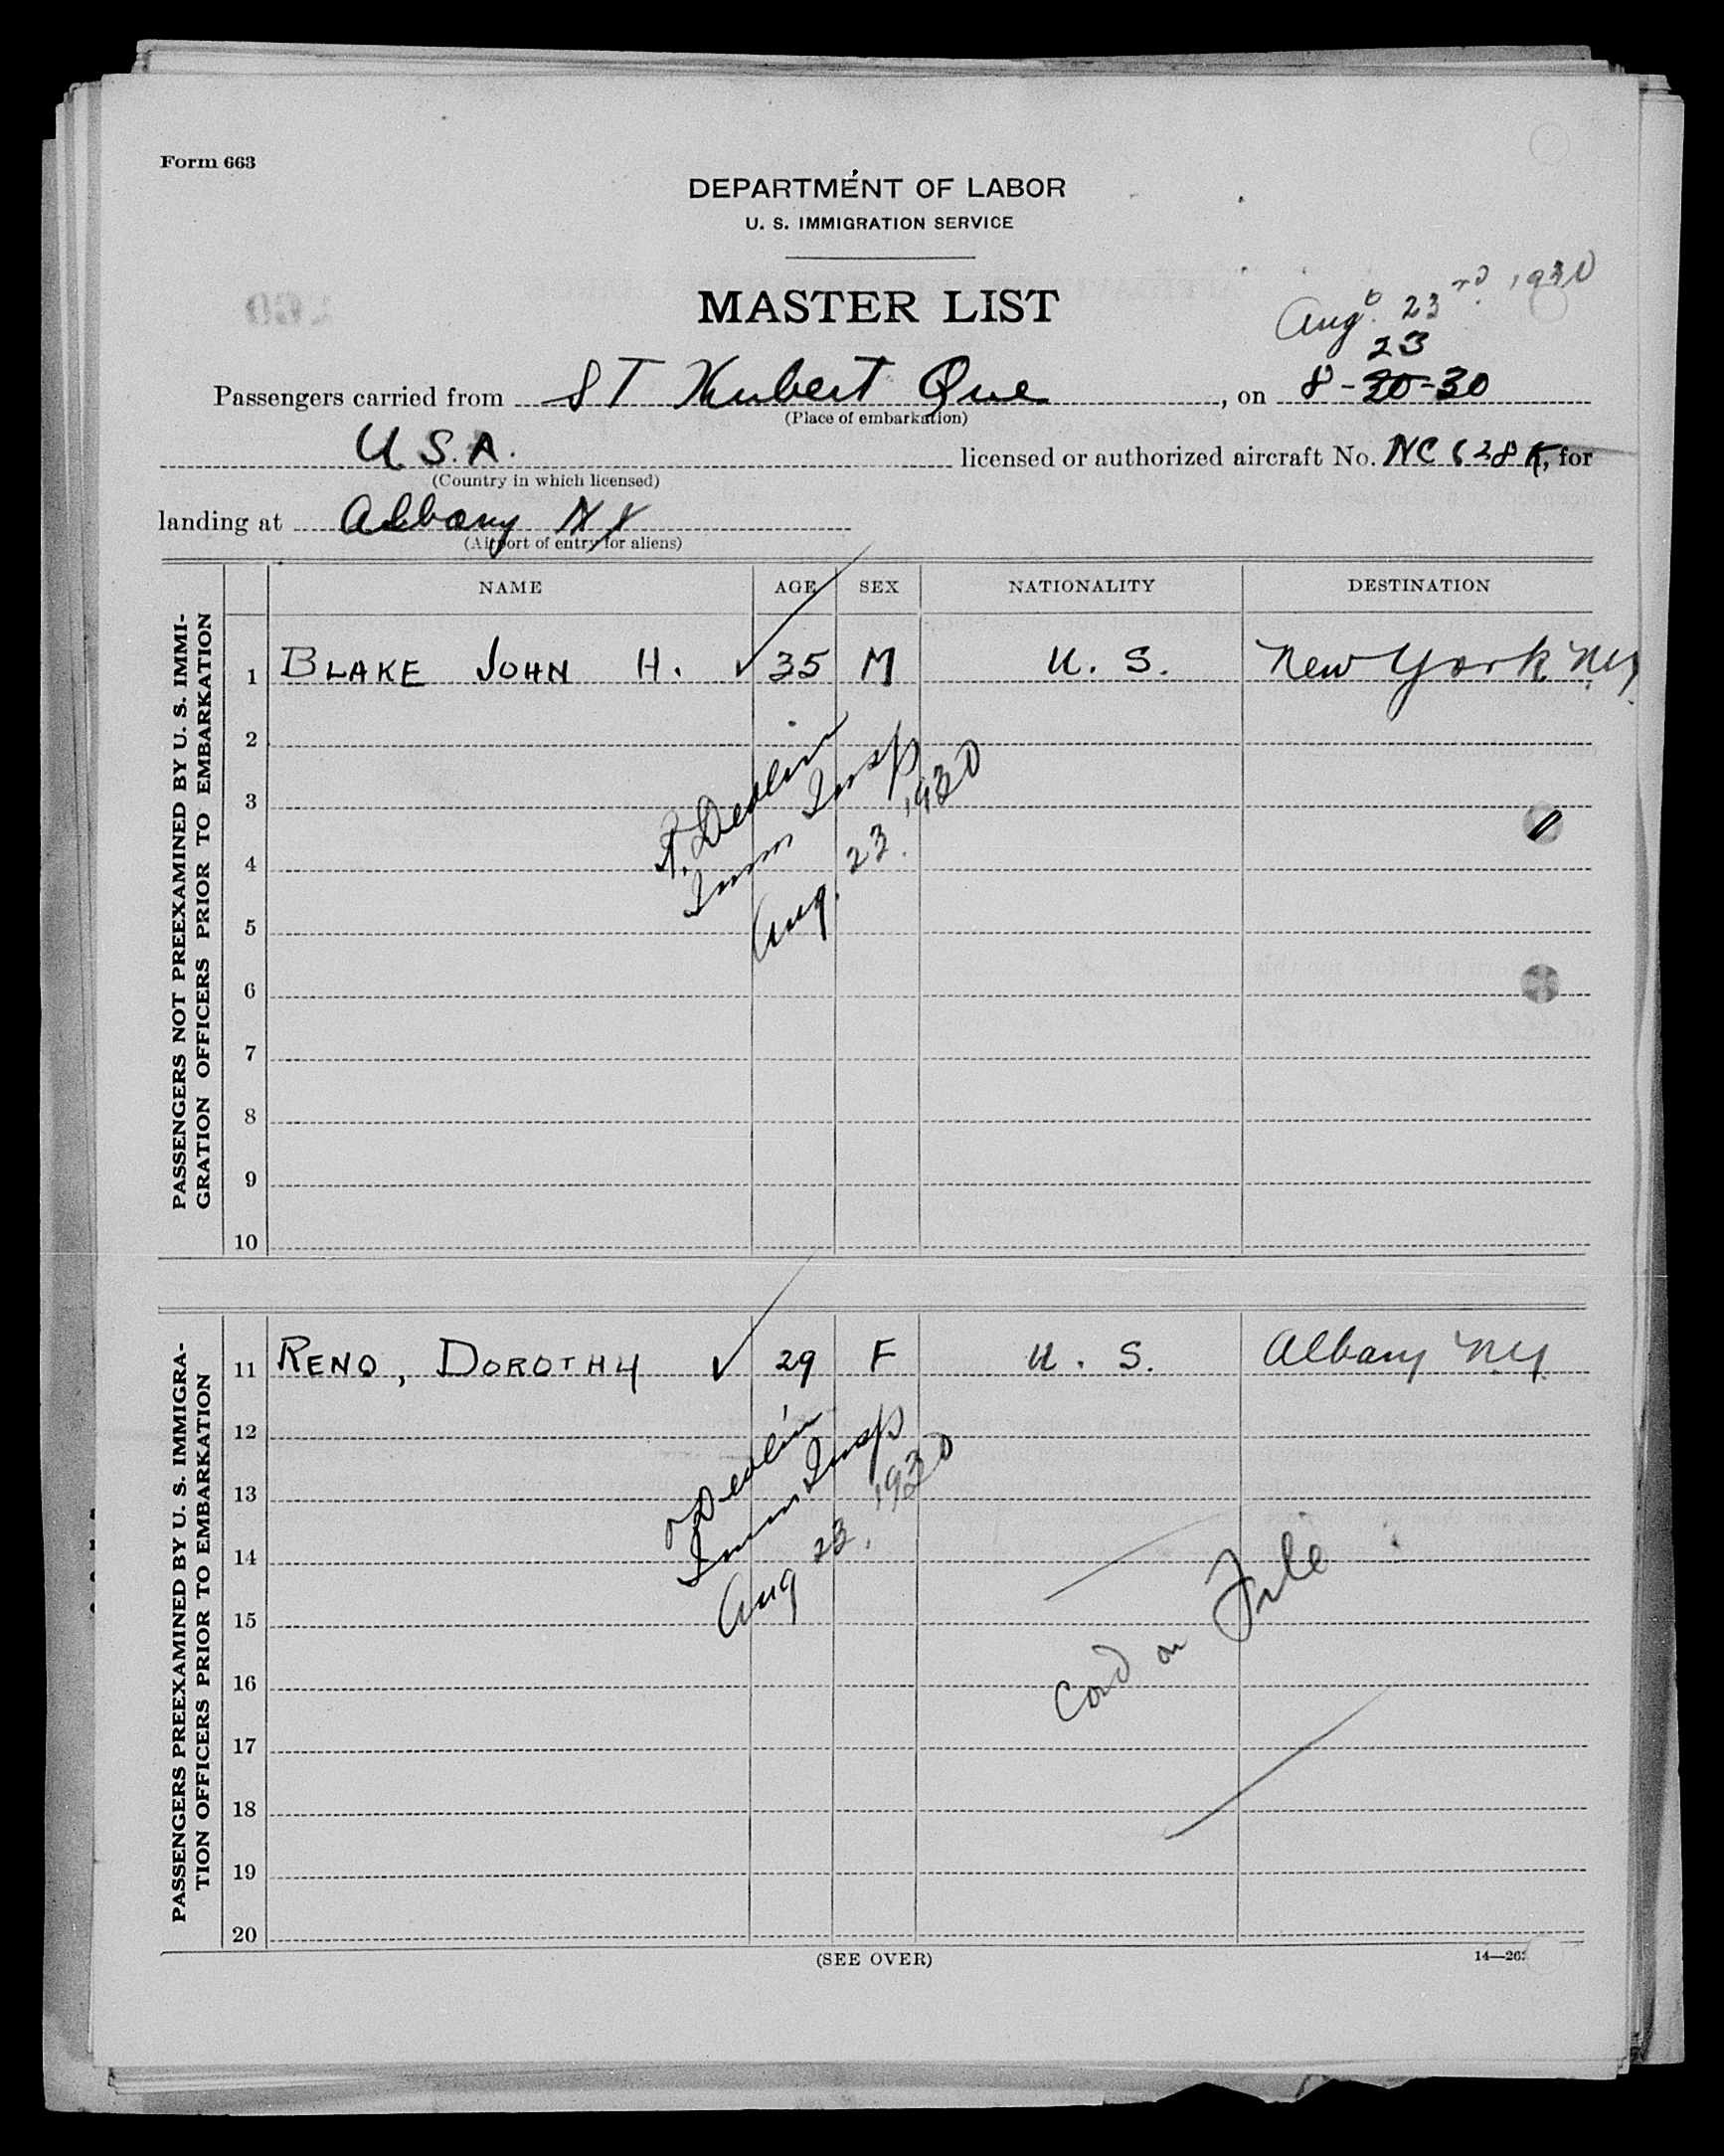 Form 663
DEPARTMENT OF LABOR
U. S. IMMIGRATION SERVICE
MASTER LIST
Aug. 23rd 1930
23
Passengers carried from ST Hubert Que, on 8-20-30
(Place of embarkation)
U.S.A. licensed or authorized aircraft No. NC 628 K, for
(Country in which licensed)
landing at Albany NY
(Airport of entry for aliens)
PASSENGERS NOT PREEXAMINED BY U. S. IMMI-
GRATION OFFICERS PRIOR TO EMBARKATION
NAME AGE SEX NATIONALITY DESTINATION
1 BLAKE JOHN H. ✓ 35 M U. S. New York NY
2
3
4
5
6
7
8
9
10
Devlin
Imm Insp
Aug. 23. 1930
PASSENGERS PREEXAMINED BY U. S. IMMIGRA-
TION OFFICERS PRIOR TO EMBARKATION
11 RENO, DOROTHY ✓ 29 F U. S. Albany NY.
12
13
14
15
16
17
18
19
20
Devlin
Imm Insp
Aug 23, 1930
Card on File
(SEE OVER)
14—263